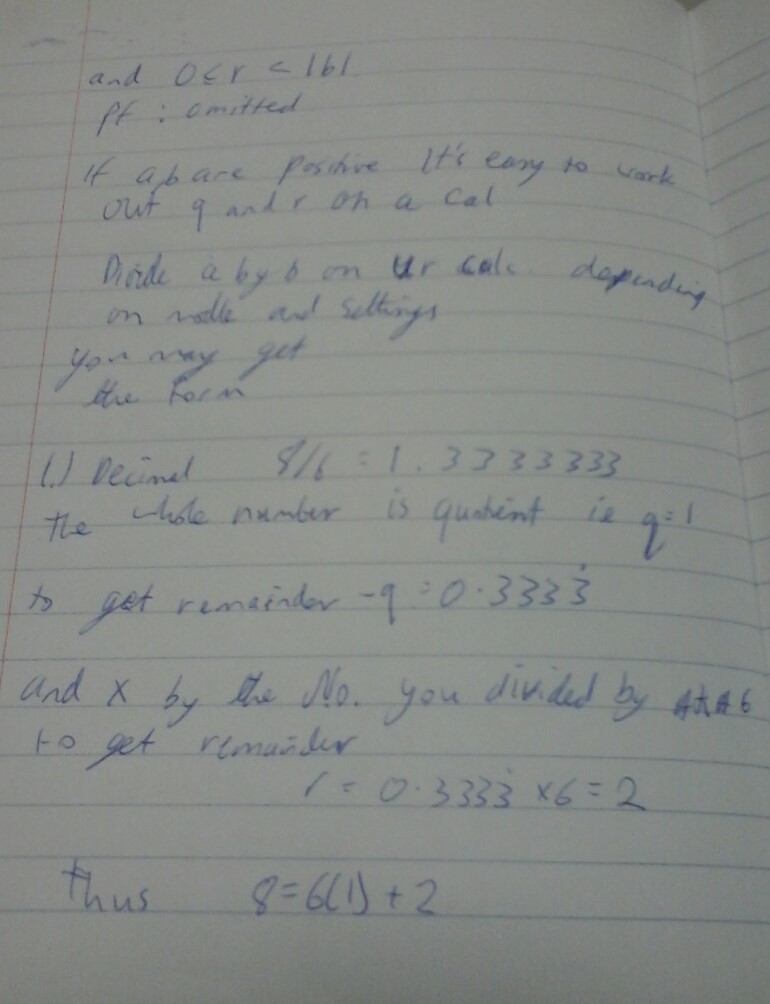 and 0 ≤ r < |b|
pf : omitted
If a, b are positive It's easy to work
out q and r on a cal
Divide a by b on ur calc. depending
on and settings
you may get
the form
(1.) Decimal 8/6 = 1.3333333
The whole number is quotient ie q=1
to get remainder -q = 0.3333̇
and x by the No. you divided by 6
to get remainder
r = 0.3333̇ x6 = 2
Thus 8=6(1)+2